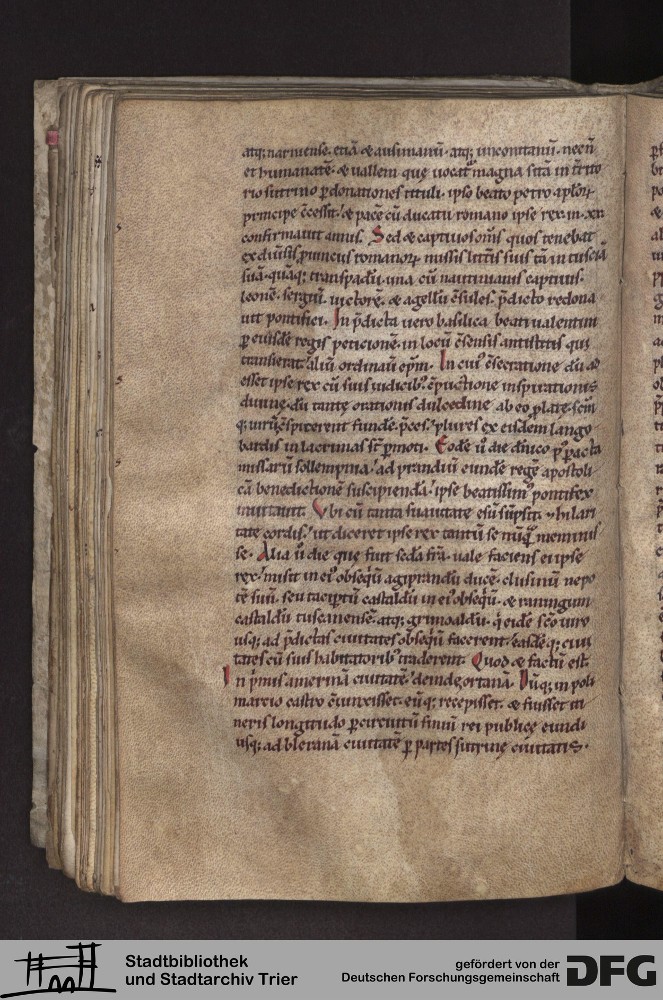 atq; narniense. etiā & ausimanū. atq; anconitanū. necn̄
et humanatē. & vallem que uocat᷑ magna sitā in t̄rito
rio sutrino p̄ donationes tituli. ipso beato petro apl̄oꝝ
principe c̄cessit. & pacē cū ducatu romano ipse rex in xx
confirmauit annis. Sed & captiuos om̄s quos tenebat
ex diūsis p̱uinciis romanoꝝ missis litt̄is suis tā in tusciā
suā. quāq; transpadū. una cū nauinianis captiuis.
leonē. sergiū. uictorē. & agellū c̄sules. p̄dicto redona
uit pontifici. In p̄dicta uero basilica beati ualentini
ꝑ eiusdē regis peticionē. in locū c̄sensis antistitis qui
transierat aliū ordinauit ep̄m. In cui' c̄secratione dū ad
esset ipse rex cū suis iudicib; c̄punctione inspirationis
diuine. dū tante orationis dulcedine ab eo plate. sc̄m
q; uirū c̄spicerent funde p̄ces. plures ex eisdem lango
bardis in lacrimas st̄ ꝑmoti. Eodē ū die dn̄ico p' ꝑacta
missarū sollempnia. ad prandiū eundē regē apostoli
cā benedictionē suscipiendā. ipse beatissim' pontifex
inuitauit. Vbi cū tanta suauitate esū sūpsit. & hilari
tate cordis. ut diceret ipse rex tantū se nūq̄ meminis
se. Alia ū die que fuit sc̄da fr̄a. uale faciens ei ipse
rex. misit in ei' obseqū agiprandū ducē. clusinū nepo
tē suū. seu taciptū castaldū in ei' obseqū. & raningum
castaldū tuscanensē. atq; grimoaldū. q̇ eidē sc̄o uiro
usq; ad p̄dictas ciuitates obseqū facerent. easdē q; ciui
tates cū suis habitatorib; traderent. Quod & factū est.
In p̄mis amerinā ciuitatē. deinde ortanā. Dūq; in poli
marcio castro c̄iunxisset. eūq; recepisset. & fuisset iti
neris longitudo ꝑ circuitū finiū rei publicę eundi
usq; ad bleranā ciuitatē ꝑ partes sutrinę ciuitatis.
Stadtbibliothek
und Stadtarchiv Trier
gefördert von der
Deutschen Forschungsgemeinschaft
DFG